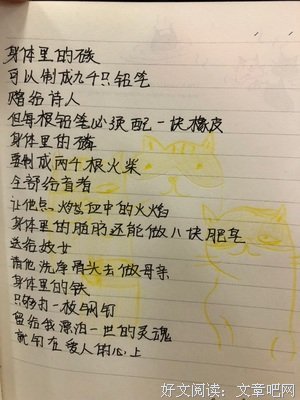 身体里的碳
可以制成九千只铅笔
赠给诗人
但每根铅笔必须配一块橡皮
身体里的磷
要制成两千根火柴
全部给盲者
让他点燃血中的火焰
身体里的脂肪还能做八块肥皂
送给妓女
请他洗净骨头去做母亲
身体里的铁
只够打一枚钢钉
留给我漂泊一世的灵魂
就钉在爱人的心上
好文阅读：文章吧网